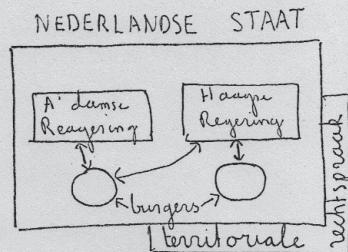 NEDERLANDSE STAAT
A'damse
Reagering
Haagse
Regering
burgers
territoriale
rechtspraak